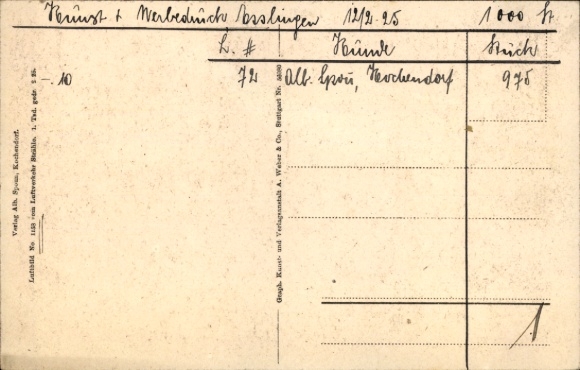 Kunst + Werbedruck Esslingen 12/2-25 1000 St
L. # Kunde Stück
-.10 72 Alb. Spon, Kochendorf 975
Verlag Alb. Sponn, Kochendorf.
Luftbild No. 1153 vom Luftverkehr Strähle. 1. Tsd. gedr. 2 25.
Graph. Kunst- und Verlagsanstalt A. Weber & Co., Stuttgart Nr.
1